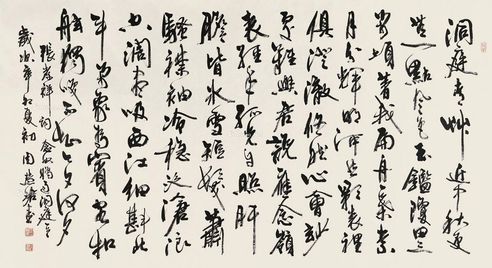 洞庭青艸近中秋更
無一點風色玉鑑瓊田三
萬頃著我扁舟一葉素
月分輝明河共影表裡
俱澄澈悠然心會妙
處難與君說應念嶺
表經年孤光自照肝
膽皆冰雪短髮蕭
騷襟袖冷穩泛滄浪
空闊盡吸西江細斟北
斗萬象為賓客扣
舷獨嘯不知今夕何夕
張孝祥詞念奴嬌過洞庭
歲次辛卯夏初周